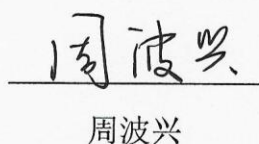 周波兴
周波兴